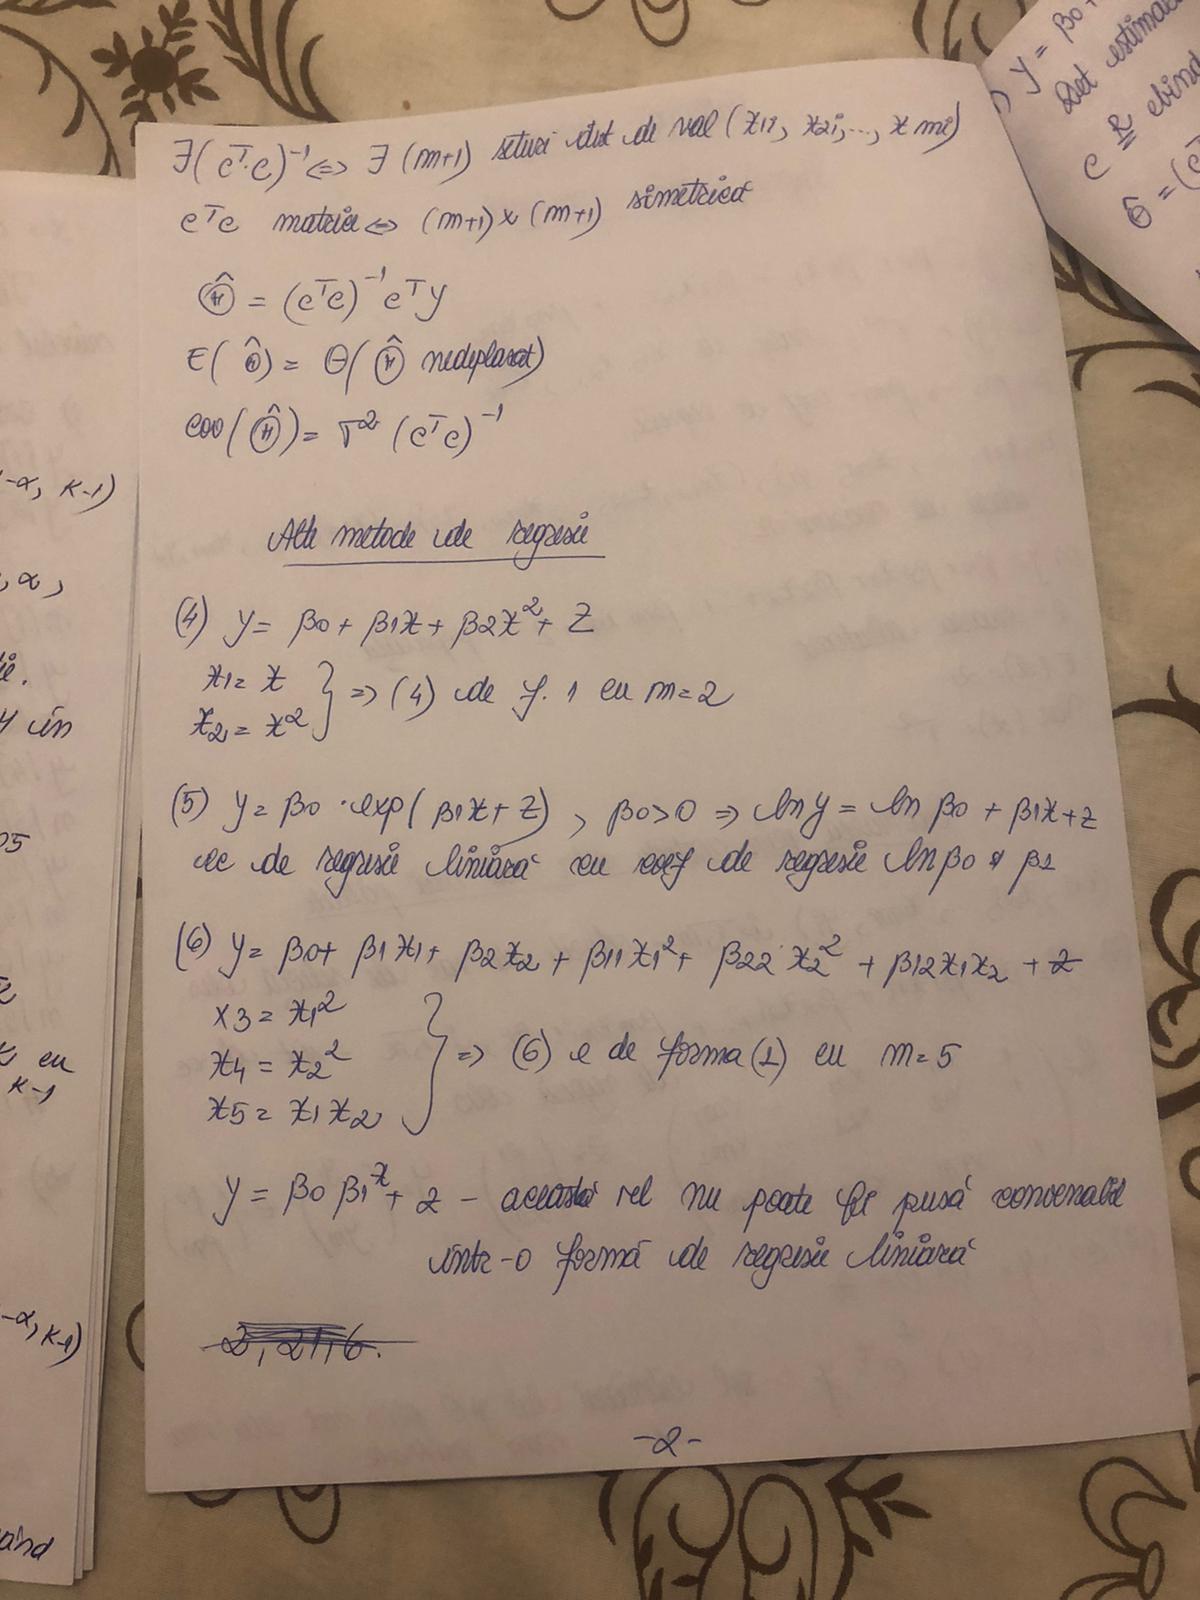 ∃(cᵀ·c)⁻¹ ⇔ ∃ (m+1) seturi dist de val (x1i, x2i, ..., x mi)
cᵀc matrice ⇔ (m+1) x (m+1) simetrică
Θ̂ = (cᵀc)⁻¹ cᵀy
E(Θ̂) = Θ (Θ̂ nedeplasat)
cov(Θ̂) = σ² (cᵀc)⁻¹
Alte metode de regresie
(4) y = β0 + β1x + β2x² + Z
x1 = x
x2 = x² } => (4) de f. 1 cu m = 2
(5) y = β0 · exp(β1x + Z), β0 > 0 => ln y = ln β0 + β1x + z
ec de regresie liniară cu coef de regresie ln β0 și β1
(6) y = β0 + β1x1 + β2x2 + β11x1² + β22x2² + β12x1x2 + z
x3 = x1²
x4 = x2² } => (6) e de forma (1) cu m = 5
x5 = x1x2
y = β0 β1ˣ + z - această rel nu poate fi pusă convenabil
într-o formă de regresie liniară
2, 21, 6.
-2-
-α, k-1)
, α,
ie.
4 în
05
k cu
k-1
-α, k-1)
ând
y = β0 +
Det
c
Θ̂ = (c